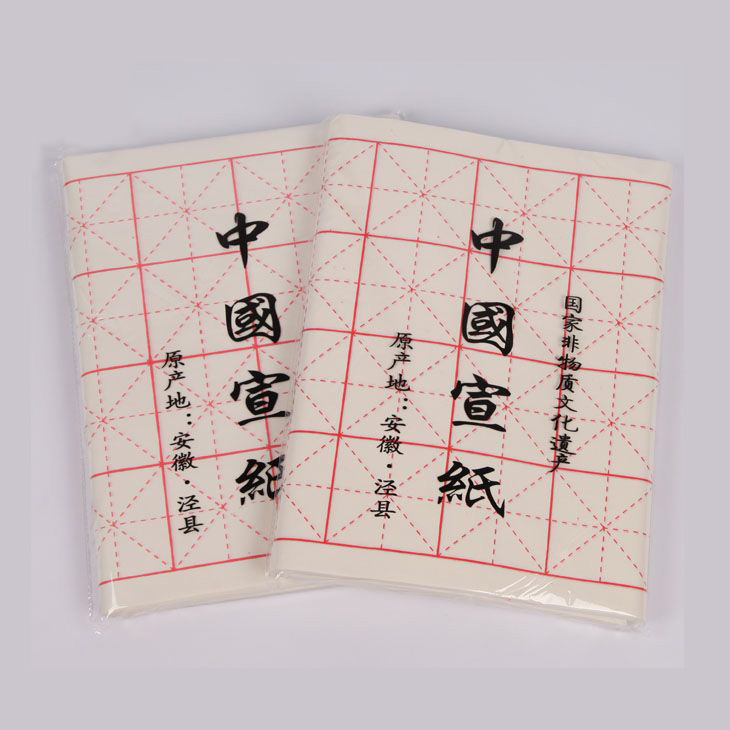 国家非物质文化遗产
中國宣紙
原产地：安徽·泾县
中國宣紙
原产地：安徽·泾县